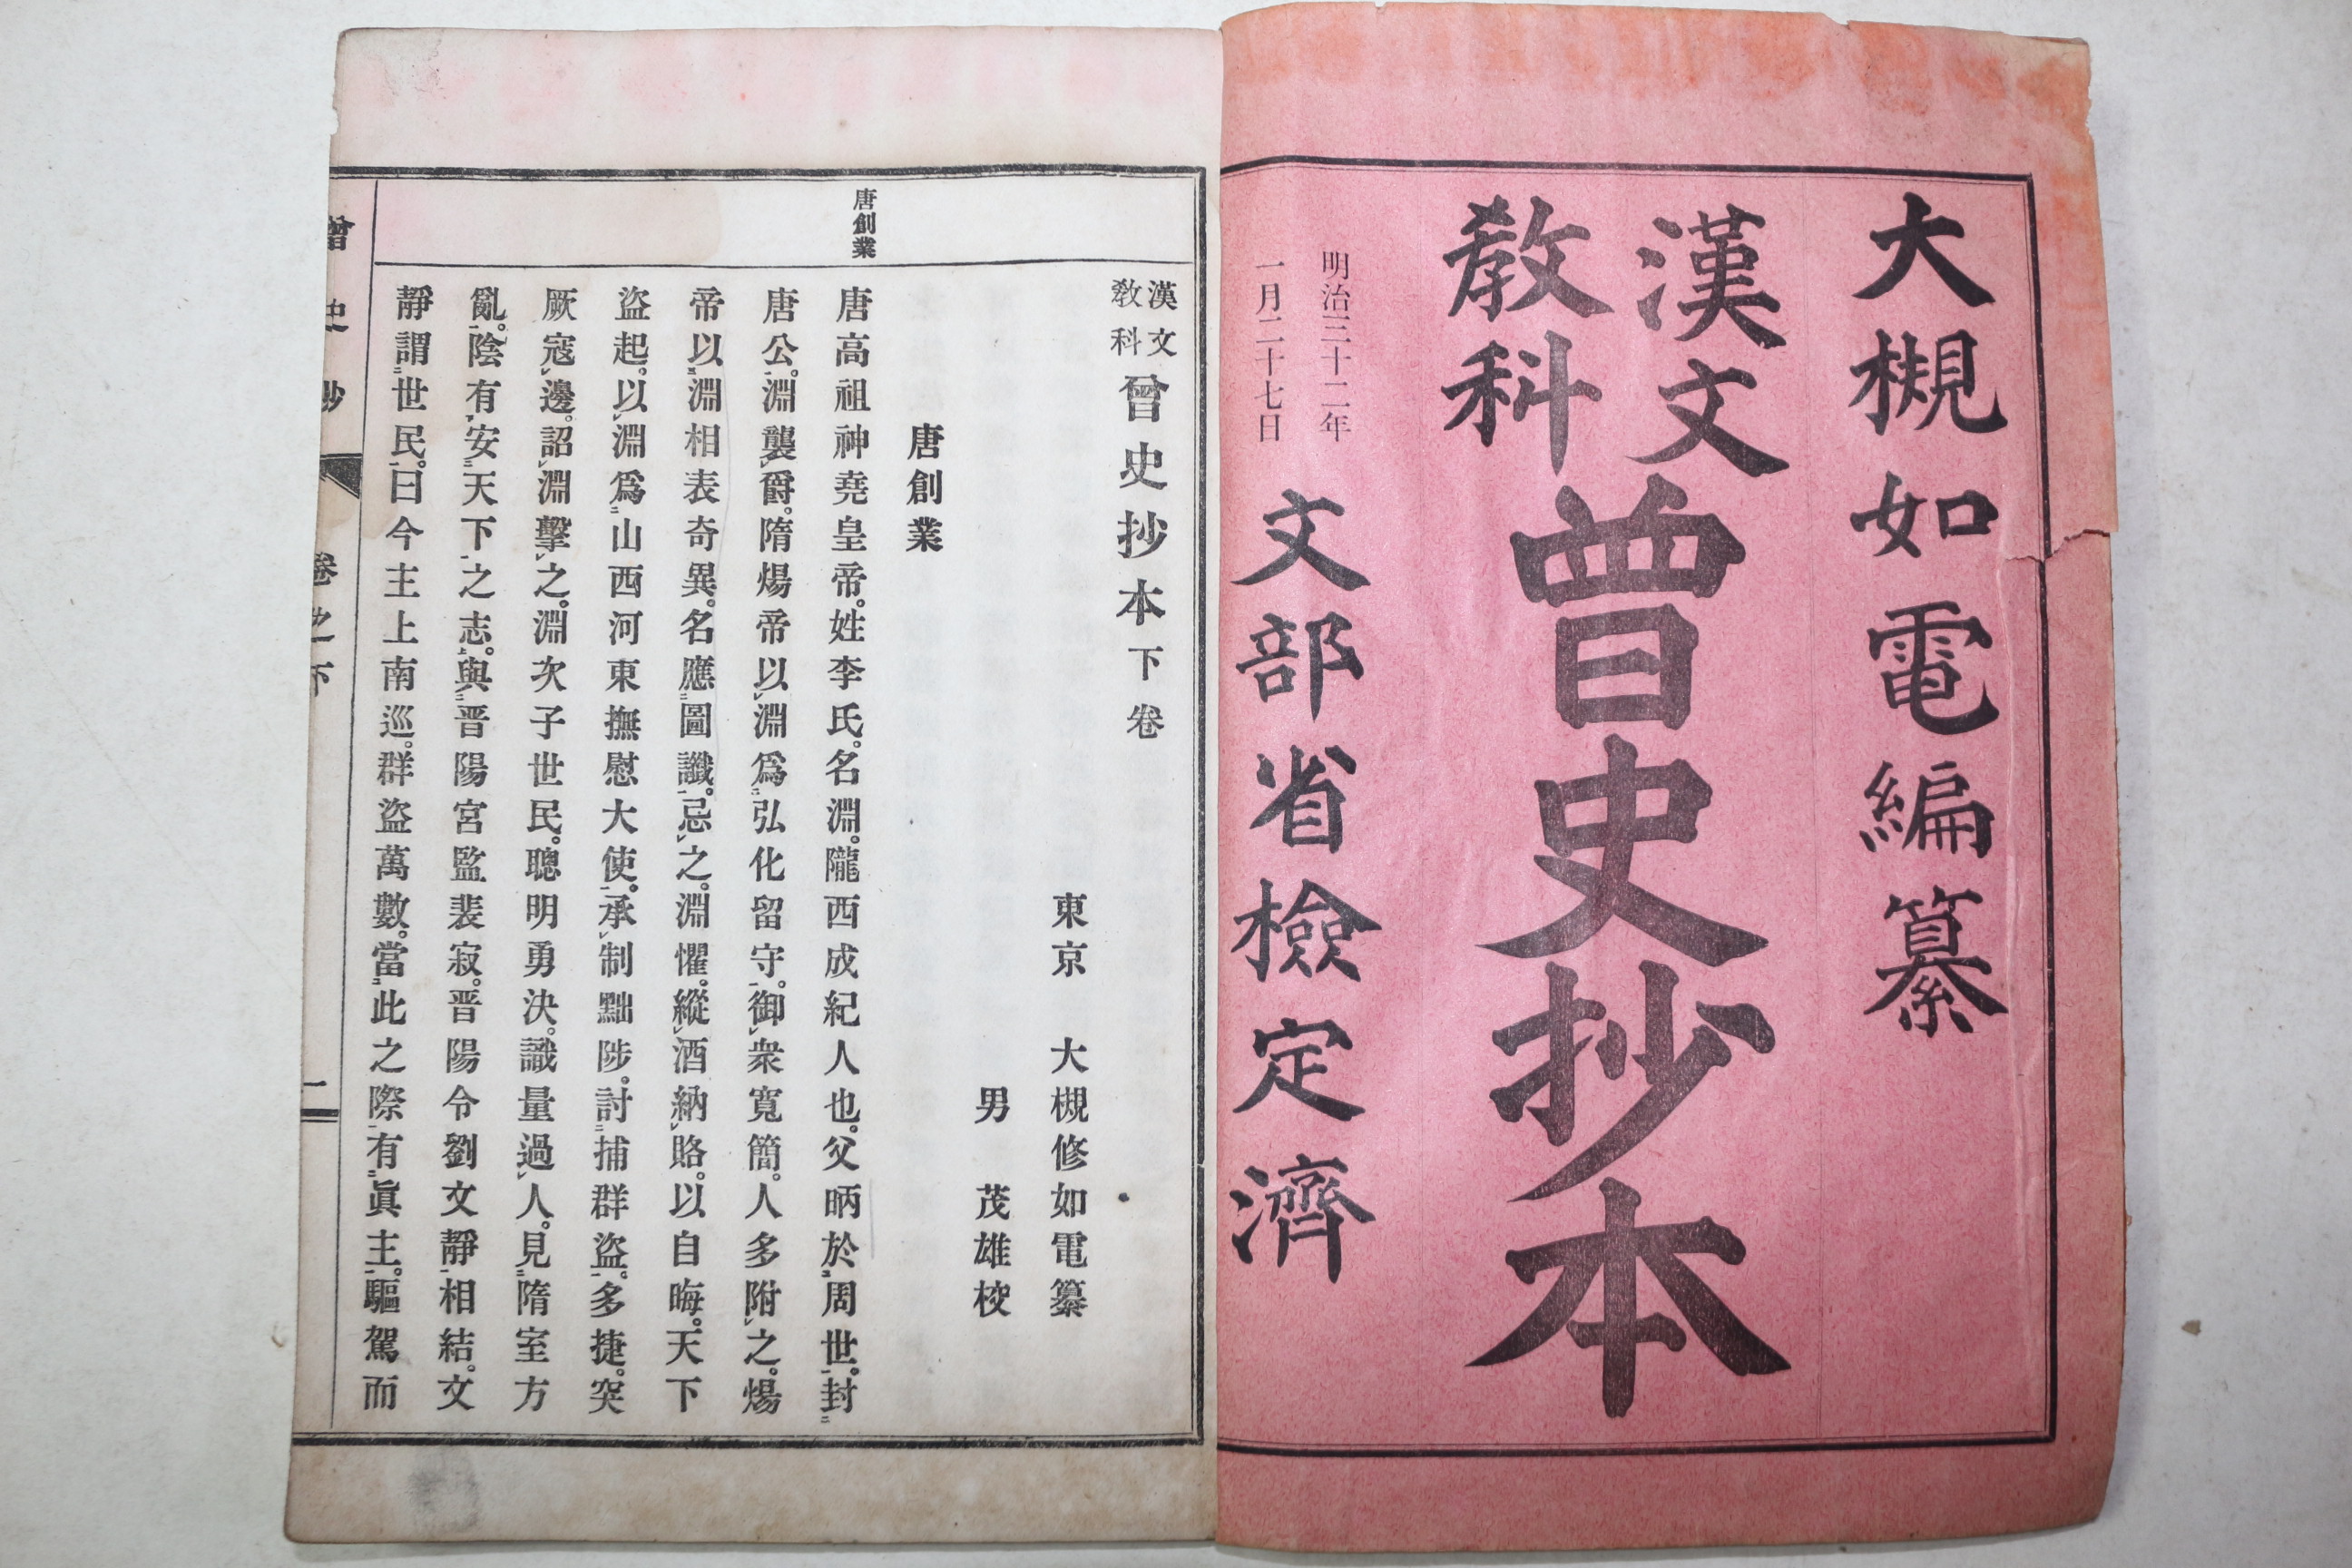 大槻如電編纂
漢文
教科
曾史抄本
明治三十二年
一月二十七日
文部省檢定濟
漢文
教科
曾史抄本下卷
東京 大槻修如電纂
男 茂雄校
唐創業
唐創業
唐高祖神堯皇帝。姓李氏。名淵。隴西成紀人也。父昞於周世。封
唐公。淵襲爵。隋煬帝以淵爲弘化留守。御衆寬簡。人多附之。煬
帝以淵相表奇異。名應圖讖。忌之。淵懼。縱酒納賂。以自晦。天下
盜起。以淵爲山西河東撫慰大使。承制黜陟。討捕群盜。多捷。突
厥寇邊。詔淵擊之。淵次子世民。聰明勇決。識量過人。見隋室方
亂。陰有安天下之志。與晋陽宮監裴寂。晋陽令劉文靜相結。文
靜謂世民。曰今主上南巡。群盜萬數。當此之際。有眞主。驅駕而
曾史抄 卷之下 一